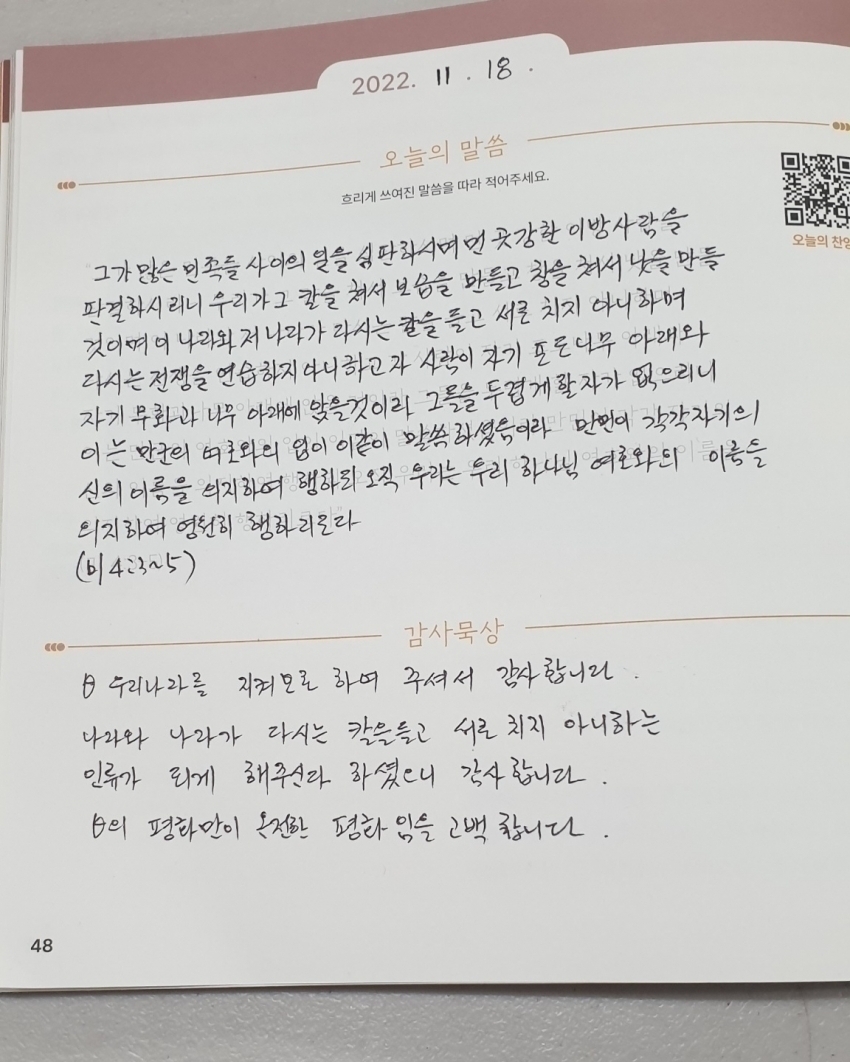 2022. 11. 18.
오늘의 말씀
흐리게 쓰여진 말씀을 따라 적어주세요.
오늘의 찬양
그가 많은 민족들 사이의 일을 심판하시며 먼 곳 강한 이방사람을
판결하시리니 우리가 그 칼을 쳐서 보습을 만들고 창을 쳐서 낫을 만들
것이며 이 나라와 저 나라가 다시는 칼을 들고 서로 치지 아니하며
다시는 전쟁을 연습하지 아니하고 각 사람이 자기 포도나무 아래와
자기 무화과 나무 아래에 앉을것이라 그들을 두렵게 할 자가 없으리니
이는 만군의 여호와의 입이 이같이 말씀하셨음이라 만민이 각각 자기의
신의 이름을 의지하여 행하되 오직 우리는 우리 하나님 여호와의 이름을
의지하여 영원히 행하리로다
(미 4:3~5)
감사묵상
우리나라를 지켜 보호 하여 주셔서 감사합니다.
나라와 나라가 다시는 칼을 들고 서로 치지 아니하는
인류가 되게 해주신다 하셨으니 감사합니다.
의 평화만이 온전한 평화임을 고백합니다.
48